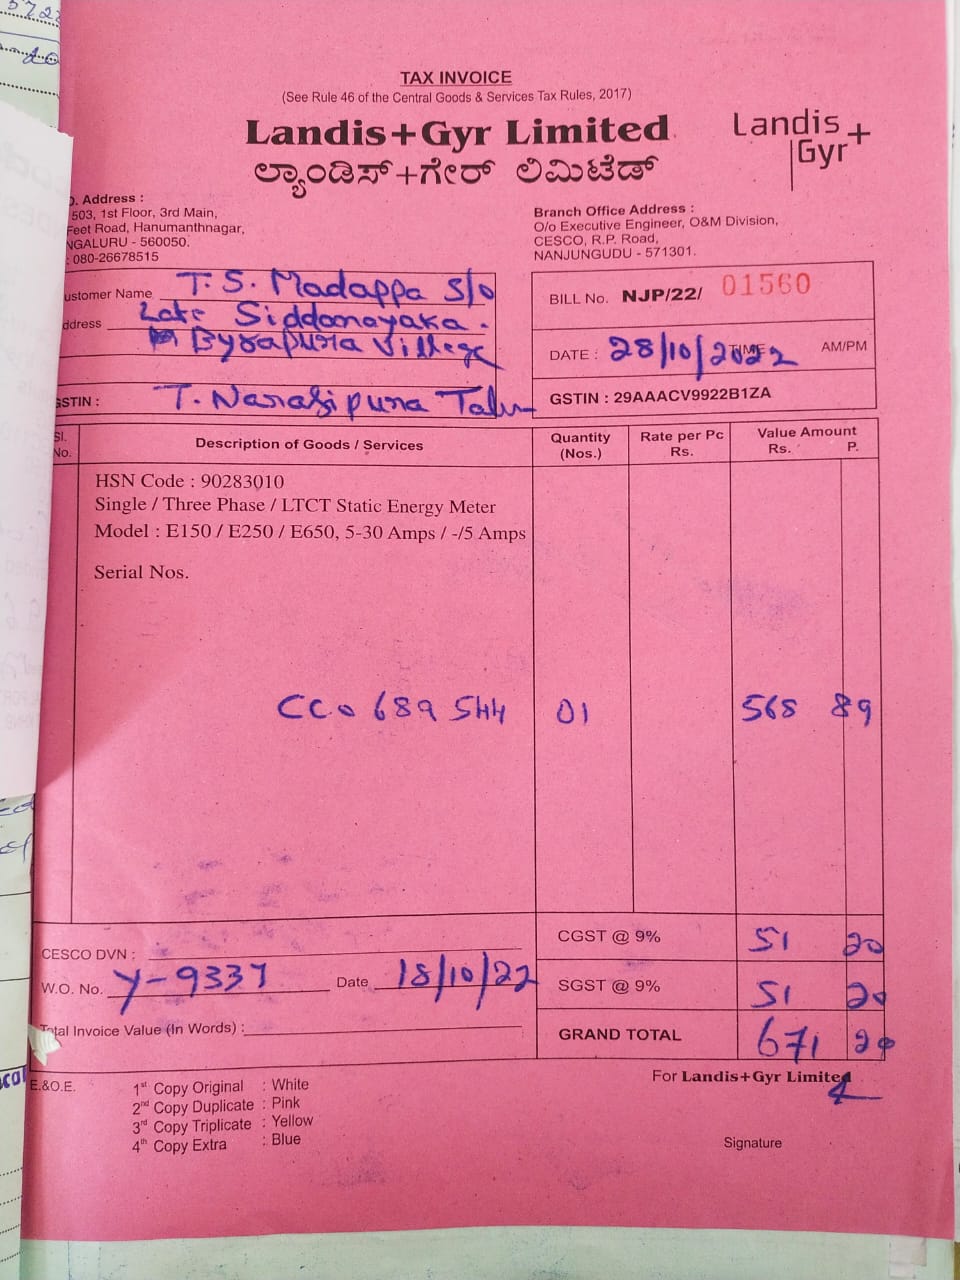 TAX INVOICE
(See Rule 46 of the Central Goods & Services Tax Rules, 2017)
Landis+Gyr Limited
ಲ್ಯಾಂಡಿಸ್+ಗೇರ್ ಲಿಮಿಟೆಡ್
Landis
Gyr+
. Address :
503, 1st Floor, 3rd Main,
Feet Road, Hanumanthnagar,
NGALURU - 560050.
: 080-26678515
Branch Office Address :
O/o Executive Engineer, O&M Division,
CESCO, R.P. Road,
NANJUNGUDU - 571301.
ustomer Name T. S. Madappa S/o
ddress Late Siddanayaka.
Byrapura Village
GSTIN : T. Narasipura Talu
BILL No. NJP/22/ 01560
DATE : 28/10/2022 TIME AM/PM
GSTIN : 29AAACV9922B1ZA
Sl. No. Description of Goods / Services Quantity (Nos.) Rate per Pc Rs. Value Amount Rs. P.
HSN Code : 90283010
Single / Three Phase / LTCT Static Energy Meter
Model : E150 / E250 / E650, 5-30 Amps / -/5 Amps
Serial Nos.
CCo 689544 01 568 89
CESCO DVN :
CGST @ 9% 51 20
W.O. No. Y-9337 Date 18/10/22
SGST @ 9% 51 20
Total Invoice Value (In Words) :
GRAND TOTAL 671 20
E.&O.E.
1st Copy Original : White
2nd Copy Duplicate : Pink
3rd Copy Triplicate : Yellow
4th Copy Extra : Blue
For Landis+Gyr Limited
Signature